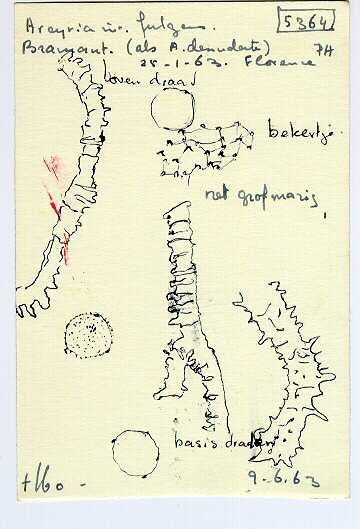 Arcyria var. fulgens. 5364
Bramant. (als A. denudata) PH
28-1-63. Florence
boven draad
bekertje
net grofmazig
basis draden
9.6.63